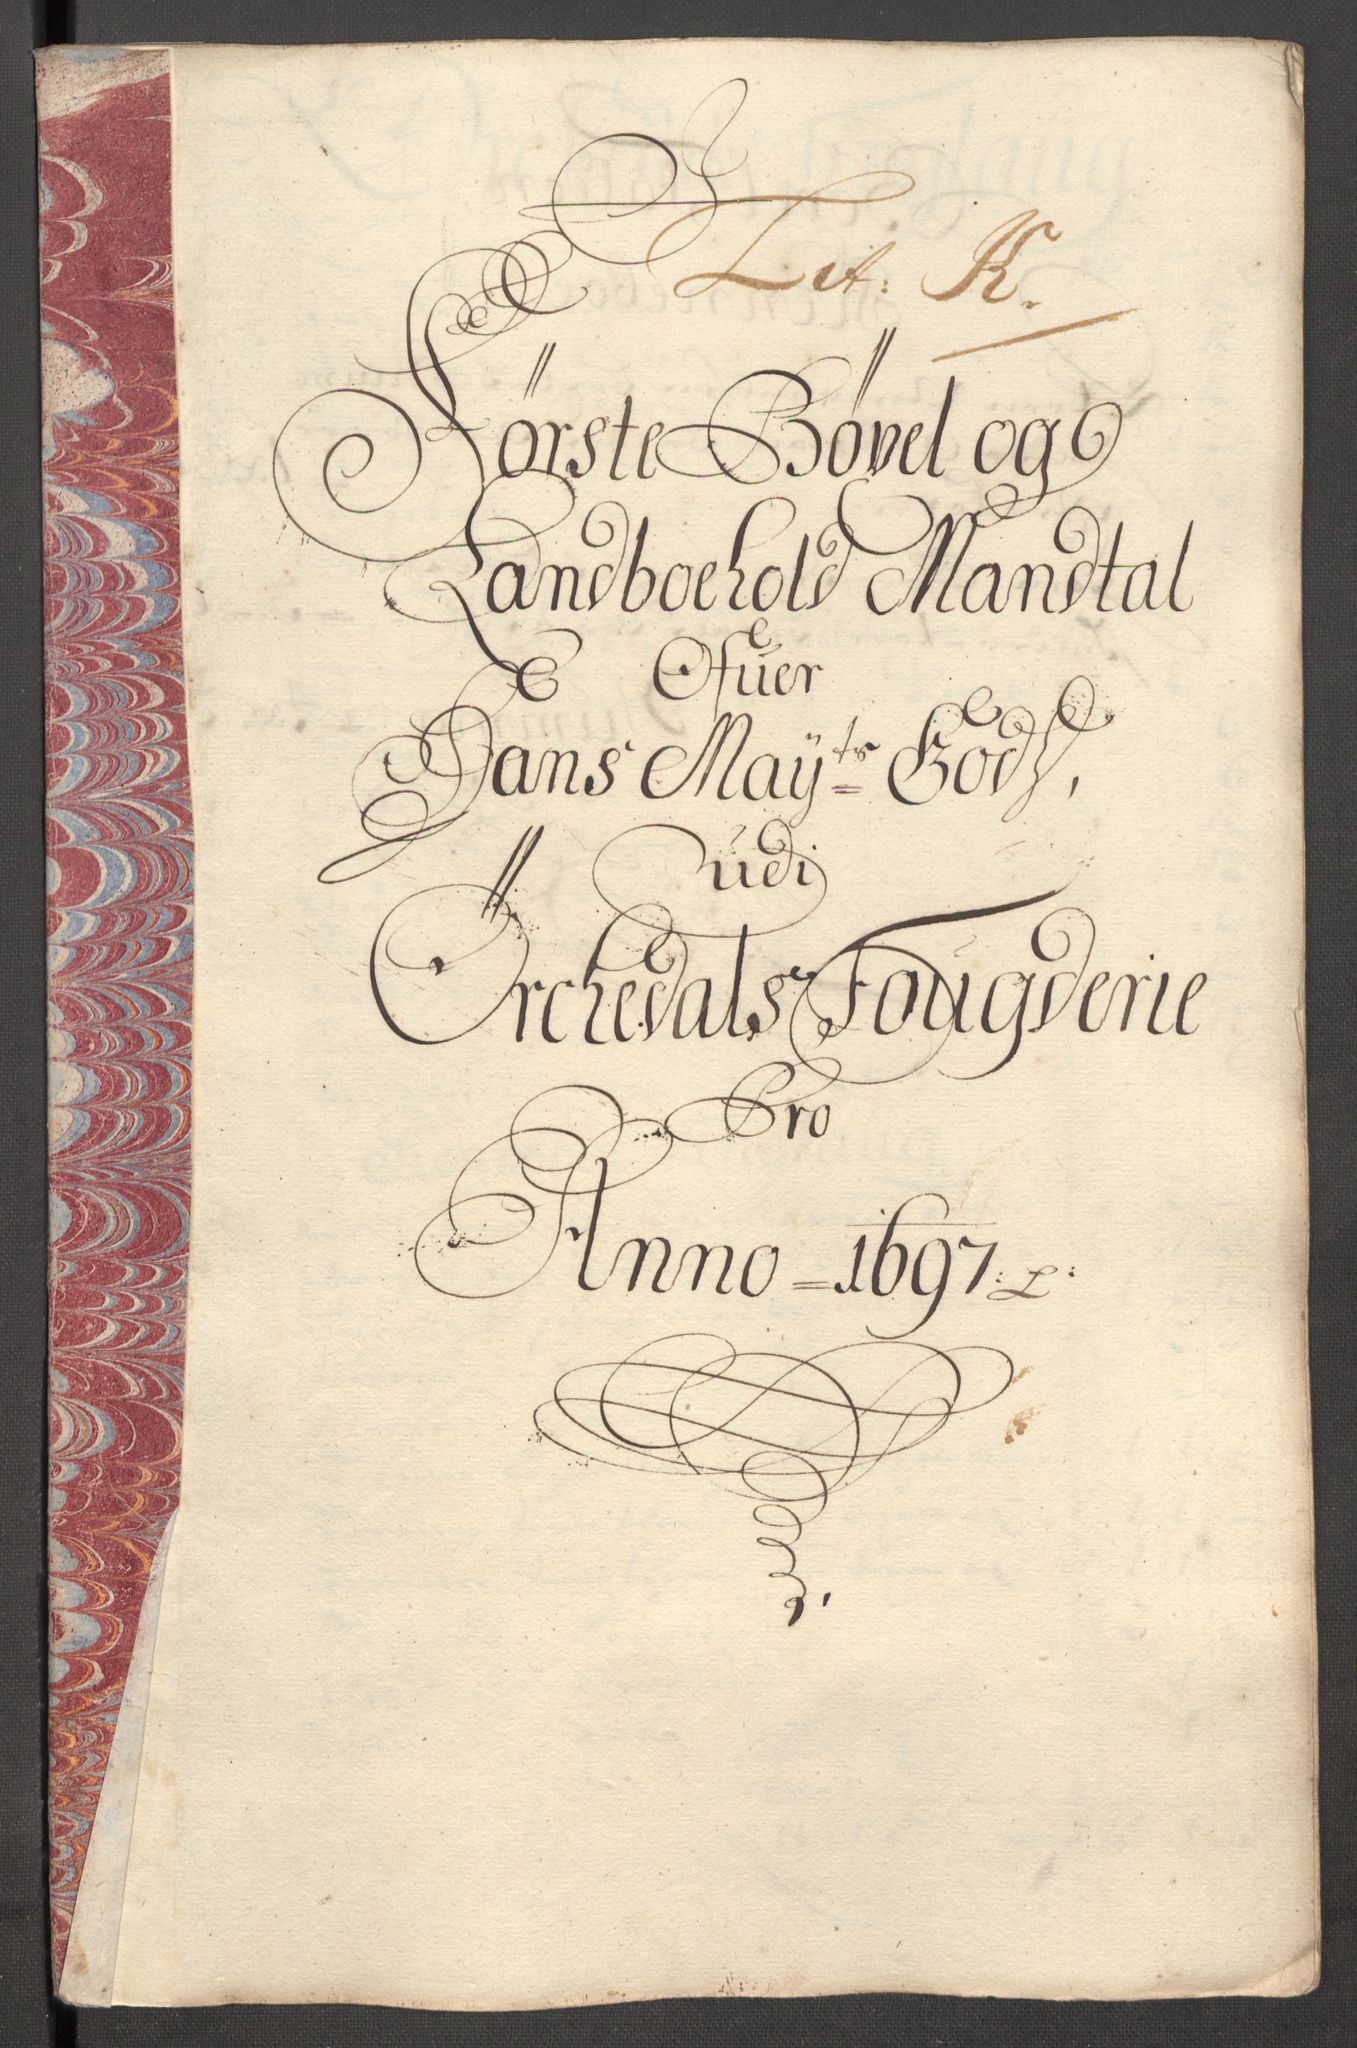 Lit: K.
Förste Bövel og
Landboehold Mandtal
Ofuer
Hans Maÿts Godß,
udi
Örchedals Fougderie
Pro
Anno = 1697: